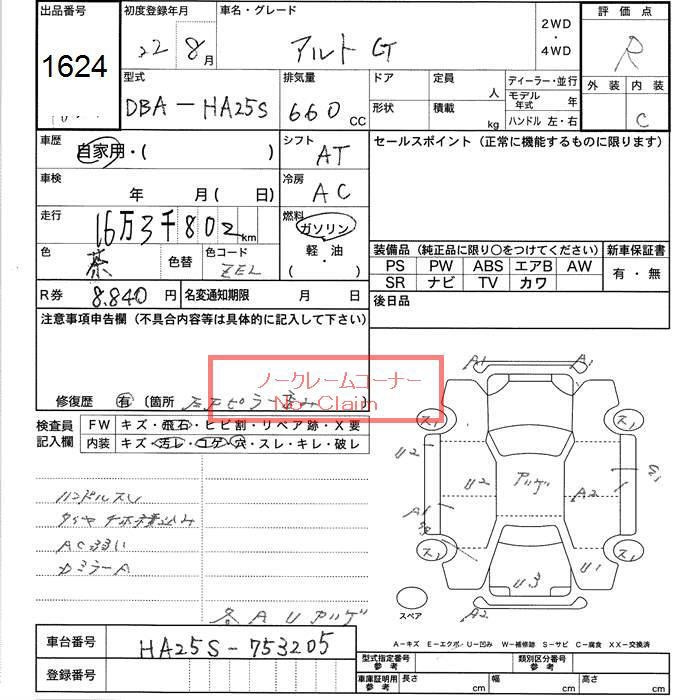 出品番号 初度登録年月 車名・グレード 2WD ・ 4WD 評価点
1624 22 8月 アルト R
外装 内装
C
型式 排気量 ドア 定員 人 ディーラー・並行
DBA-HA25S 660 CC 形状 積載 kg モデル年式 年
ハンドル 左・右
車歴 自家用・( ) シフト AT セールスポイント (正常に機能するものに限ります)
車検 年 月( 日) 冷房 AC
走行 16万3千802km 燃料 ガソリン
軽・油
( )
色 茶 色替 色コード ZEL
装備品 (純正品に限り〇をつけてください) 新車保証書
PS PW ABS エアB AW 有・無
SR ナビ TV カワ
R券 8.840円 名変通知期限 月 日 後日品
注意事項申告欄 (不具合内容等は具体的に記入して下さい)
ノークレームコーナー
No Claim
修復歴 有 〔箇所 ピラー
検査員記入欄 FW キズ・飛石・ヒビ割・リペア跡・X要
内装 キズ・汚レ・コゲ・穴・スレ・キレ・破レ
ハンドルスレ
タイヤ
AC弱い
カミラーA
各AUアリ
A1 A1
ス1 ス1
U2 U2 A2
A1
ス1 ス1
U3 U1
スペア A2
A-キズ E-エクボ U-凹み W-補修跡 S-サビ C-腐食 XX-交換済
車台番号 HA25S-753205
登録番号
型式指定番号 参考 類別区分番号 参考
車庫証明用 参考 長さ cm 幅 cm 高さ cm